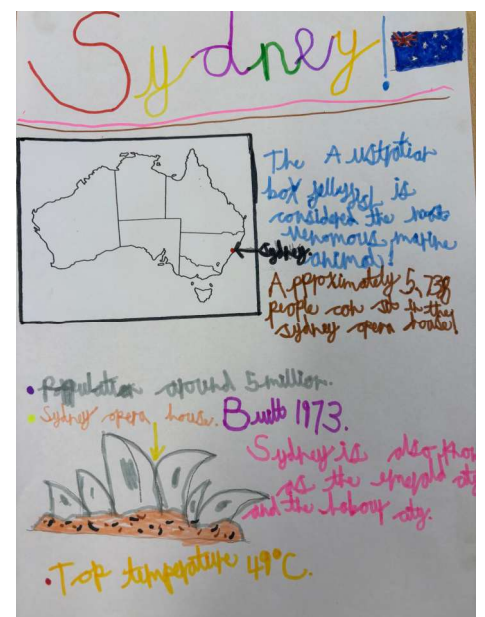 Sydney!
The Australian
box jellyfish is
considered the most
venomous marine
animal!
Sydney.
Approximately 5,738
people can sit in the
sydney opera house!
• Population around 5 million.
• Sydney opera house. Built 1973.
Sydney is also
as the emerald city
and the habour city.
• Top temperature 49°C.